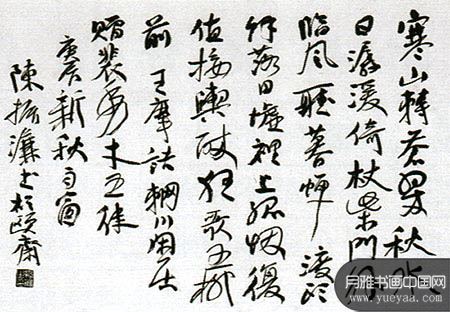 寒山轉蒼翠秋水
日潺湲倚杖柴門外
臨風聽暮蟬渡頭
餘落日墟裡上孤煙復
值接輿醉狂歌五柳
前 王摩詰輞川閒居
贈裴秀才五律
庚辰新秋雨窗
陳振濂書於頤齋
月雅书画中国网
www.yueyaa.com